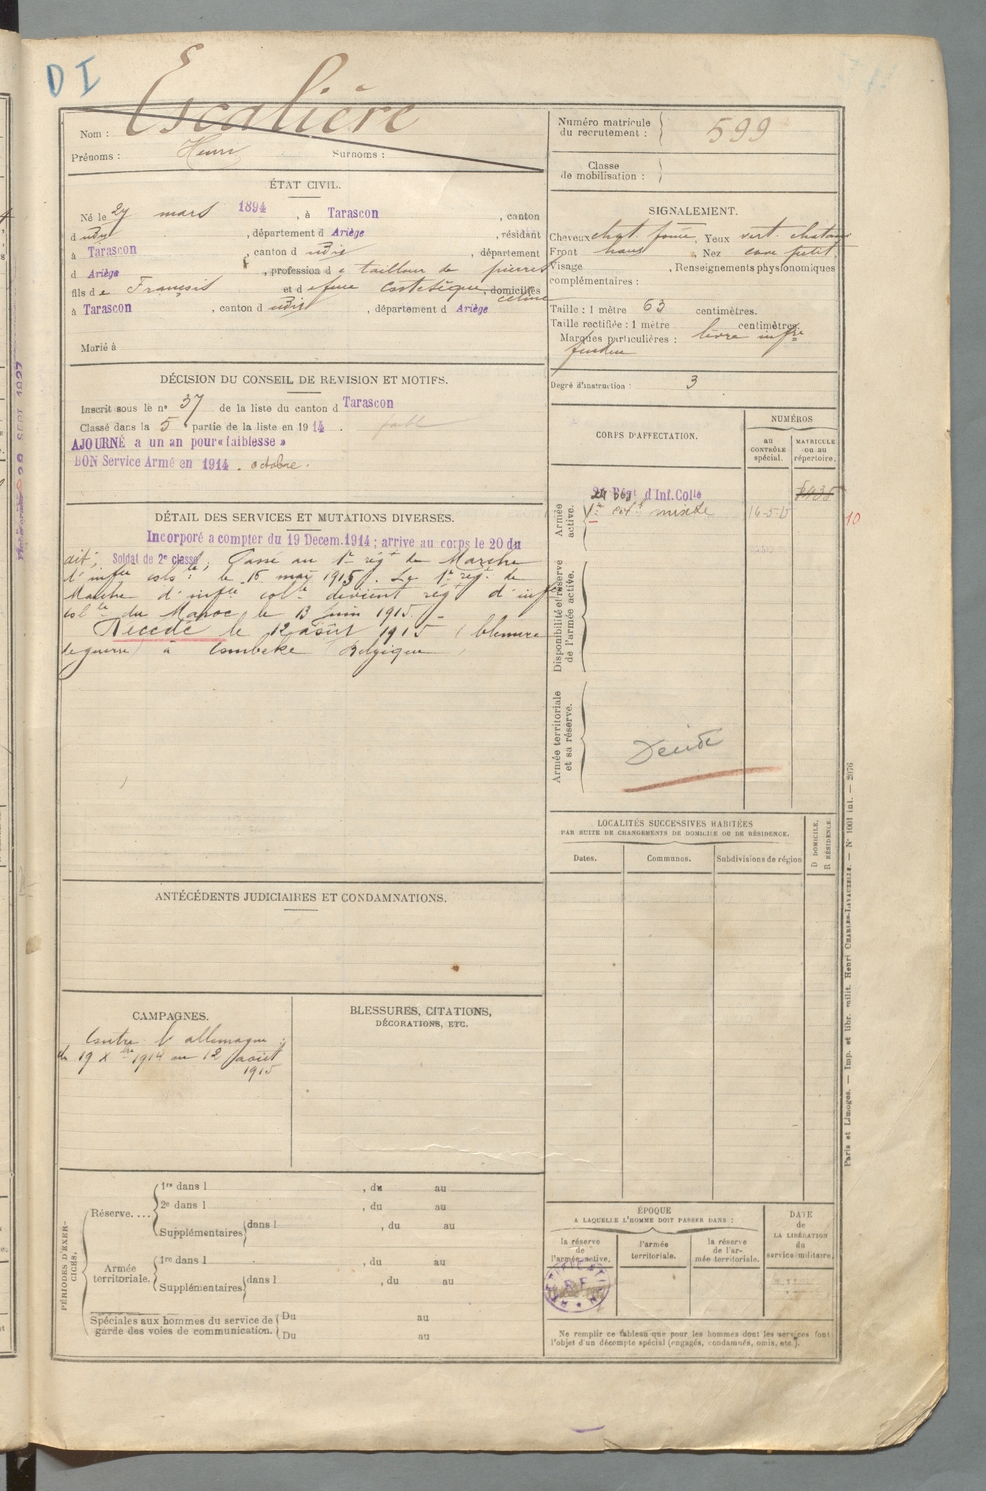 D I
Nom : Escalière
Prénoms : Henri Surnoms :
ÉTAT CIVIL.
Né le 27 mars 1894, à Tarascon, canton
dudit, département d Ariège, résidant
à Tarascon, canton dudit, département
d Ariège, profession de tailleur de pierres
fils de François et de feue Céline, domiciliés
à Tarascon, canton dudit, département d Ariège
Marié à
DÉCISION DU CONSEIL DE REVISION ET MOTIFS.
Inscrit sous le nº 37 de la liste du canton d Tarascon
Classé dans la 5 partie de la liste en 1914. faible
AJOURNÉ a un an pour « faiblesse »
BON Service Armé en 1914. octobre.
DÉTAIL DES SERVICES ET MUTATIONS DIVERSES.
Incorporé a compter du 19 Decem. 1914; arrive au corps le 20 du
dit; Soldat de 2e classe; Passé au 1er régt de Marche
d'infie colle le 15 mai 1915. Le 1er régt de
Marche d'infie colle devient régt d'infie
colle du Maroc le 13 Juin 1915.
Décédé le 12 août 1915 (blessure
de guerre) à Belgique
ANTÉCÉDENTS JUDICIAIRES ET CONDAMNATIONS.
CAMPAGNES.
Contre l'allemagne :
du 19 Xbre 1914 au 12 août
1915
BLESSURES, CITATIONS,
DÉCORATIONS, ETC.
PÉRIODES D'EXERCICES.
Réserve.... 1re dans l , du au
2e dans l , du au
Supplémentaires dans l , du au
Armée territoriale. 1re dans l , du au
Supplémentaires dans l , du au
Spéciales aux hommes du service de garde des voies de communication. Du au
Du au
Numéro matricule
du recrutement : 599
Classe
de mobilisation :
SIGNALEMENT.
Cheveux chat. foncé, Yeux vert. chatain
Front haut, Nez cave petit
Visage , Renseignements physionomiques
complémentaires :
Taille : 1 mètre 63 centimètres.
Taille rectifiée : 1 mètre centimètres.
Marques particulières : lèvre infre
fendue
Degré d'instruction : 3
CORPS D'AFFECTATION.
NUMÉROS
au CONTRÔLE spécial.
MATRICULE ou au répertoire.
Armée active.
24 Régt d'Inf. Colle
colt mixte 16-5-15
10
Disponibilité et réserve de l'armée active.
Armée territoriale et sa réserve.
Décédé
LOCALITÉS SUCCESSIVES HABITÉES
PAR SUITE DE CHANGEMENTS DE DOMICILE OU DE RÉSIDENCE.
Dates. Communes. Subdivisions de région D DOMICILE. R RÉSIDENCE
ÉPOQUE
A LAQUELLE L'HOMME DOIT PASSER DANS :
la réserve de l'armée active.
l'armée territoriale.
la réserve de l'armée territoriale.
DATE
de
LA LIBÉRATION
du
service militaire.
Ne remplir ce tableau que pour les hommes dont les services font
l'objet d'un décompte spécial (engagés, condamnés, omis, etc.).
Paris et Limoges. — Imp. et libr. milit. Henri CHARLES-LAVAUZELLE. — Nº 1001 int. — 2076